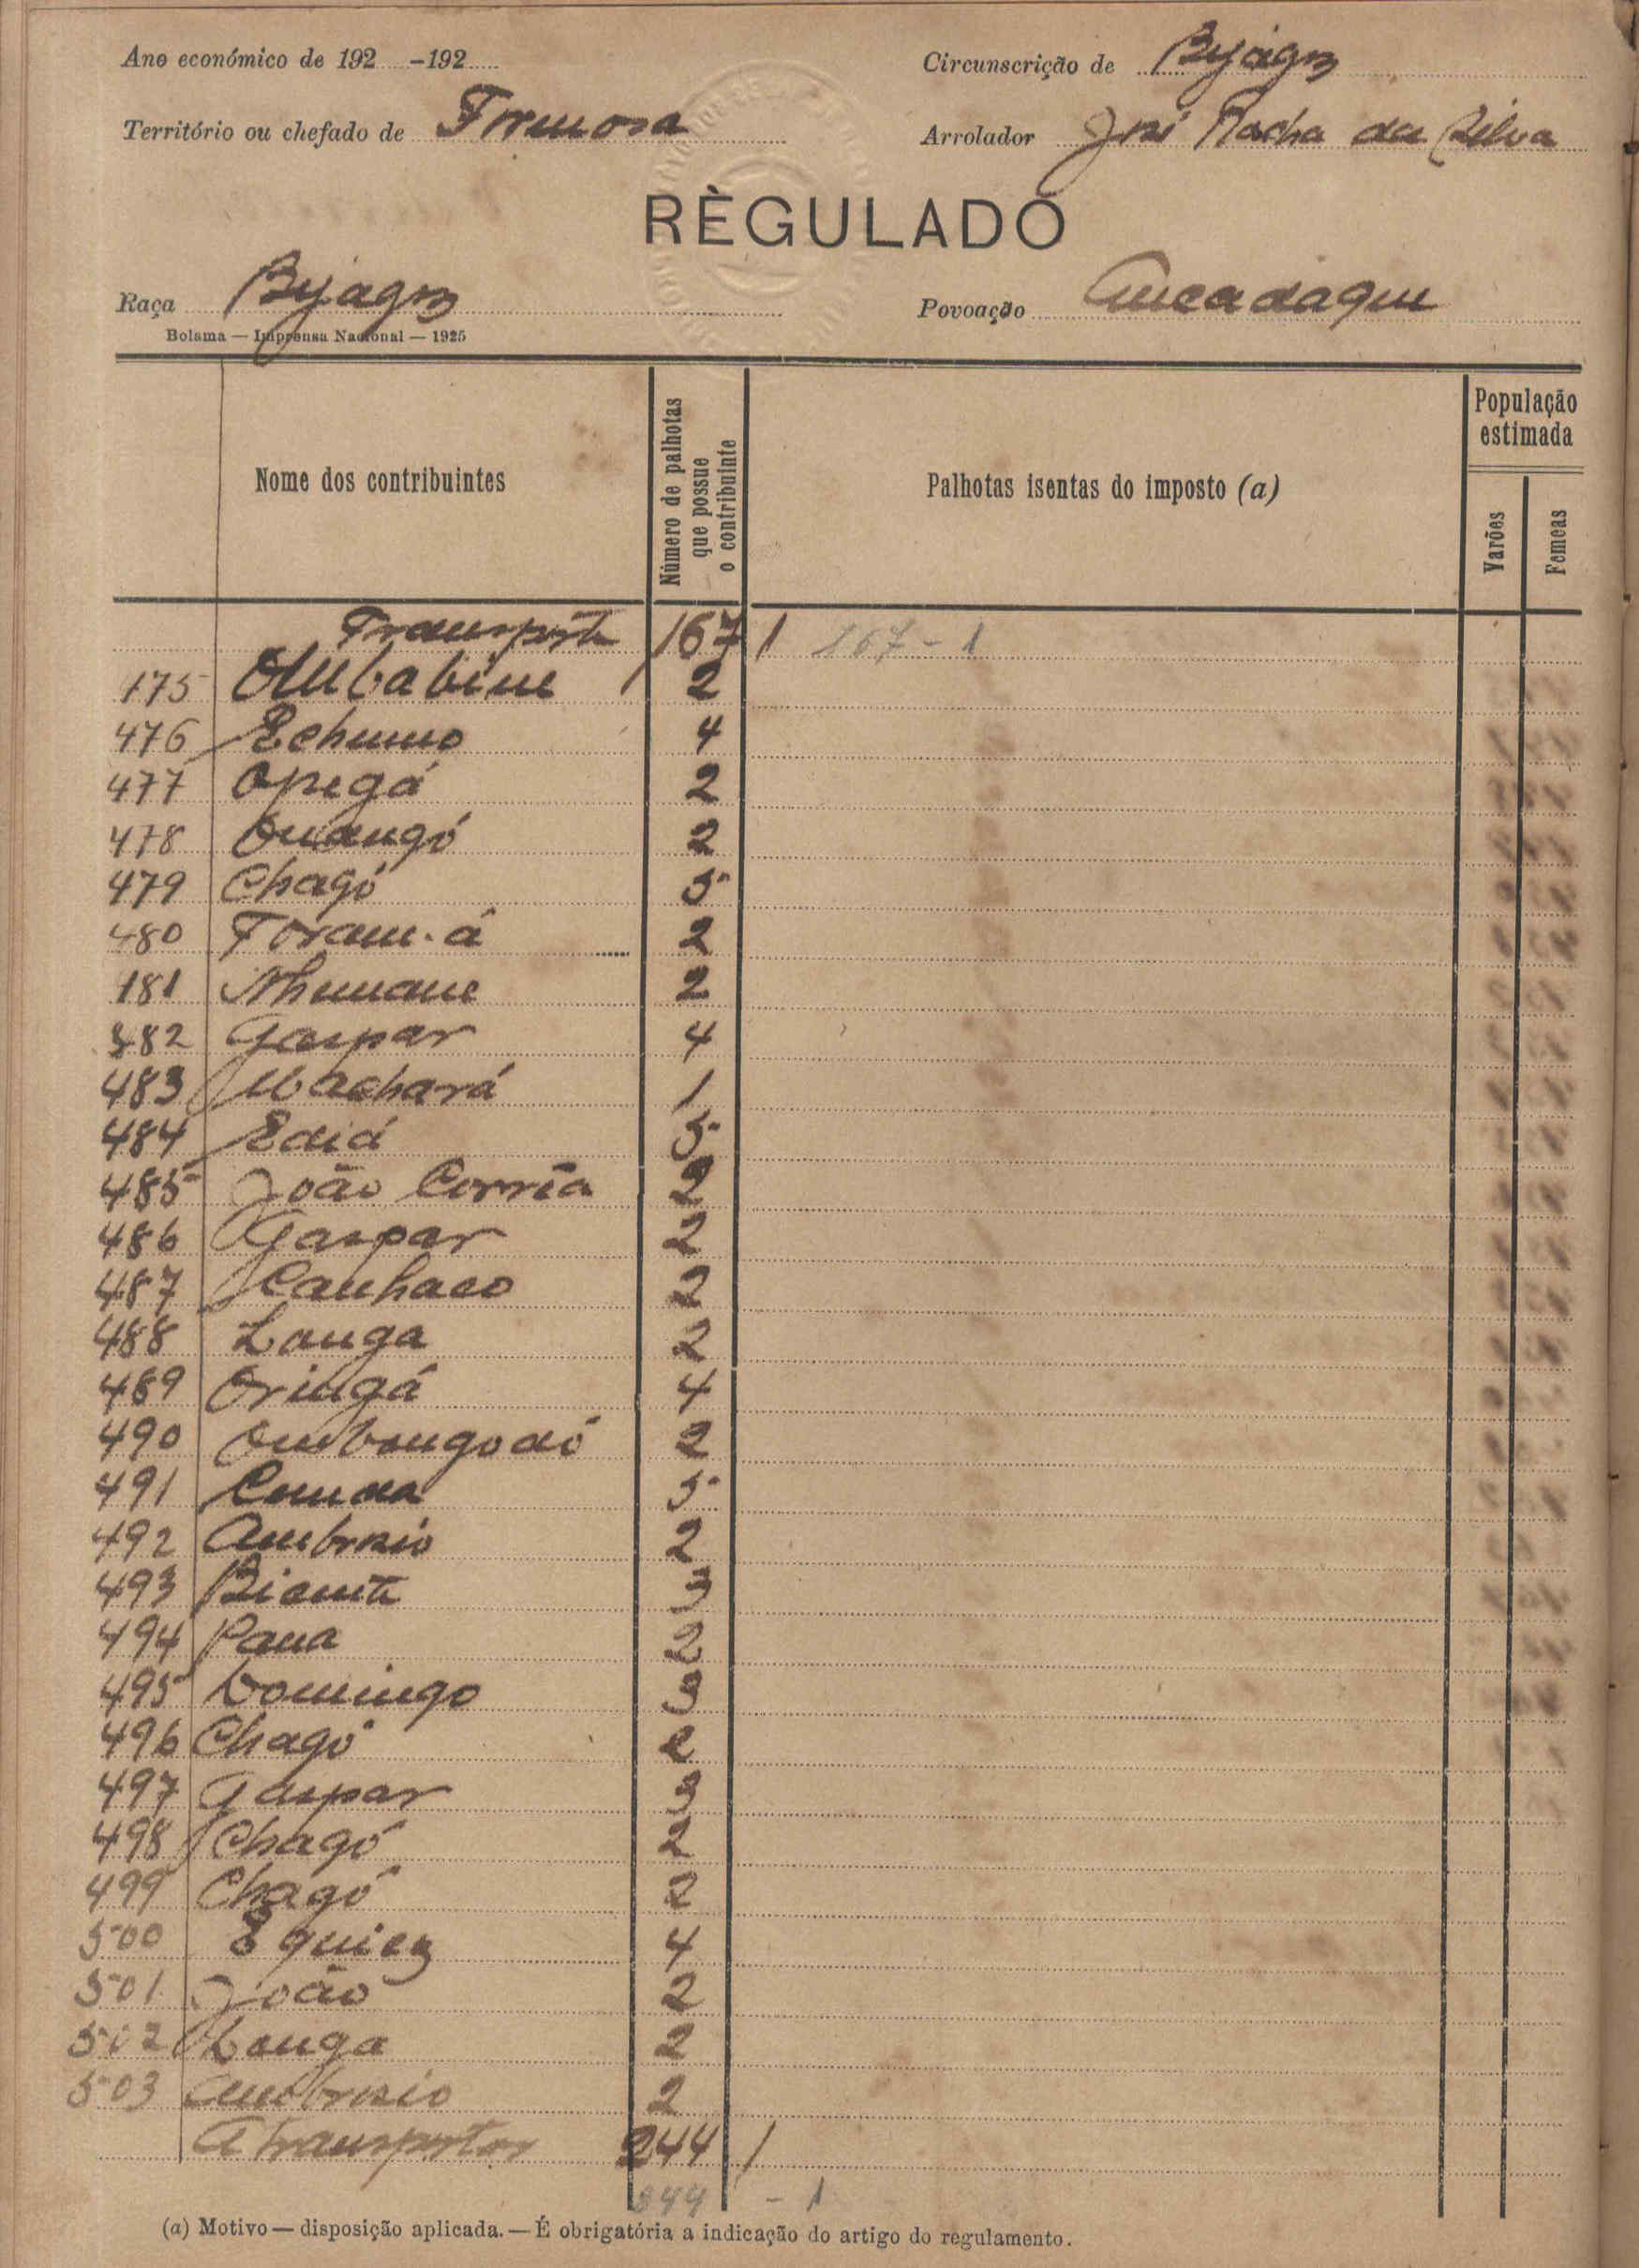 Ano económico de 192 -192
Circunscrição de Byagoz
Território ou chefado de Formosa
Arrolador José Rocha da Silva
RÈGULADO
Raça Byagoz
Povoação Ancadaque
Bolama — Imprensa Nacional — 1925
Nome dos contribuintes
Número de palhotas que possue o contribuinte
Palhotas isentas do imposto (a)
População estimada
Varões
Femeas
Transporte 167 1 167 - 1
175 2
476 Echumo 4
477 Opegá 2
478 Ouangó 2
479 Chagó 5
480 Toram-á 2
181 Nhumane 2
482 Gaspar 4
483 Machará 1
484 Edid 5
485 João Corrêa 2
486 Gaspar 2
487 Canhaco 2
488 Langa 2
489 Oringá 4
490 Ombongodó 2
491 2 5
492 Ambrosio 2
493 Biante 3
494 Pana 2
495 Domingo 3
496 Chagó 2
497 Gaspar 3
498 Chagó 2
499 Chagó 2
500 4
501 João 2
502 Longa 2
503 Ambrosio 2
A transportar 244 1
244 - 1
(a) Motivo — disposição aplicada. — É obrigatória a indicação do artigo do regulamento.